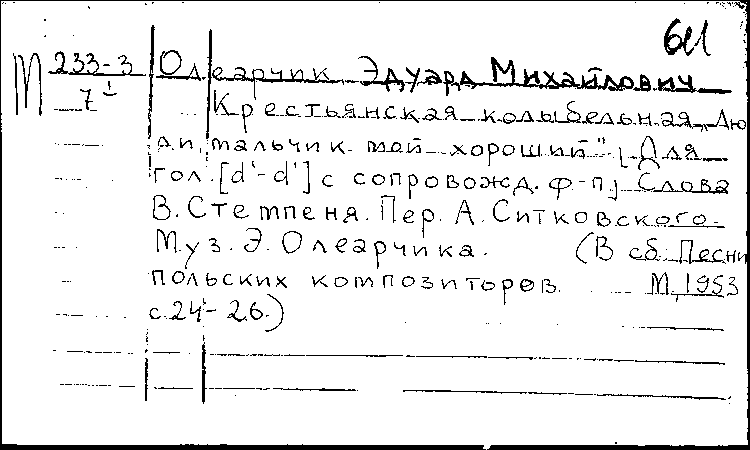 би
М 233-3 Олеарчик Эдуард Михайлович
7
Крестьянская колыбельная „Лю
ли, мальчик мой хороший". [Для
гол. [d'-d'] с сопровожд. ф-п.] Слова
В. Стемпеня. Пер. А. Ситковского.
Муз. Э. Олеарчика. (В сб. Песни
польских композиторов М., 1953
с. 24-26.)